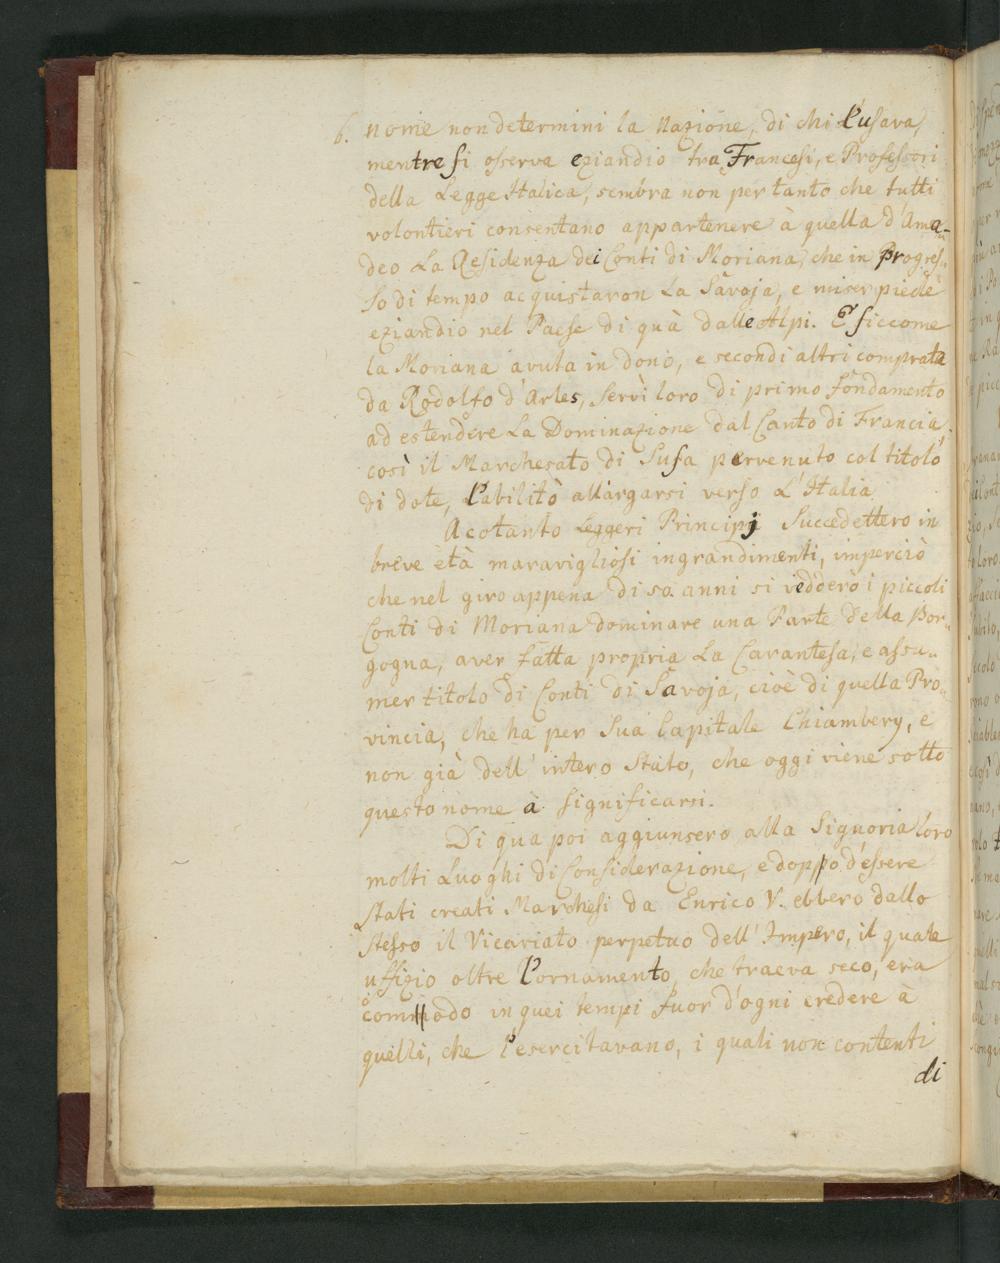 6. nome non determini la Nazione, di chi l'usava,
mentre si osserva eziandio tra Francesi, e Professori
della Legge Italica, sembra non per tanto che tutti
volontieri consentano appartenere à quella d'Ama-
deo La Residenza dei Conti di Moriana, che in Progres„
so di tempo acquistaron La Savoja, e miser piede
eziandio nel Paese di quà dalle Alpi. E siccome
la Moriana avuta in dono, e secondi altri comprata
da Rodolfo d'Arles, servì loro di primo fondamento
ad estendere La Dominazione dal Canto di Francia
così il Marchesato di Susa pervenuto col titolo
di dote, l'abilitò allargarsi verso L'Italia
A cotanto Leggeri Principij Succedettero in
breve età maravigliosi ingrandimenti, imperciò
che nel giro appena di 50. anni si vedderò i piccoli
Conti di Moriana dominare una Parte della Bor„
gogna, aver fatta propria La Tarantesa, e assu„
mer titolo di Conti di Savoja, cioè di quella Pro„
vincia, che ha per Sua Capitale Chiambery, e
non già dell'intero Stato, che oggi viene sotto
questo nome à significarsi.
Di qua poi aggiunsero alla Signoria loro
molti Luoghi di Considerazione, e doppo d'essere
Stati creati Marchesi da Enrico V. ebbero dallo
Stesso il Vicariato perpetuo dell'Impero, il quale
uffizio oltre l'ornamento, che traeva seco, era
commodo in quei tempi fuor d'ogni credere à
quelli, che l'esercitavano, i quali non contenti
di